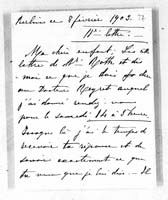 Berlin ce 8 février 1903.
11e lettre
Ma chère enfant, J'ai
lettre de Mr Roth et dis
moi ce que je dois
docteur auquel
j'ai donné rendez-vous
pour le samedi 14 à 5 heures
Jusque là j'ai le temps de
recevoir ta réponse et de
savoir exactement ce que
tu veux que je lui dise